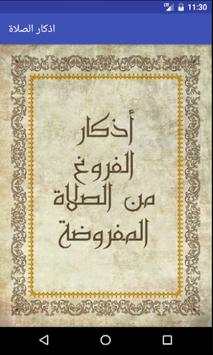 11:30
اذكار الصلاة
أذكار
الفروغ
من الصلاة
المفروضة